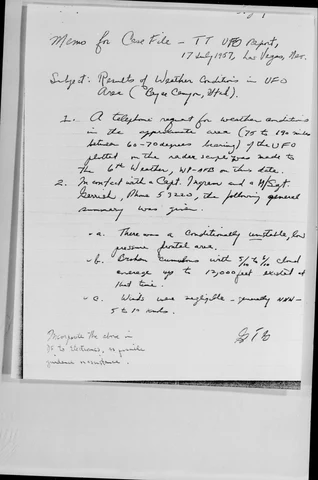 Memo for Case File – TT UFO Report,
17 July 1957, Las Vegas, Nev.
Subject: Results of Weather Conditions in UFO
Area ( Canyon, Utah).
1. A telephone request for weather conditions
in the approximate area (75 to 190 miles
between 60-70 degrees bearing) of the UFO
plotted on the radar scope was made to
the 6th Weather, WP-AFB on this date.
2. In contact with a Capt. Ingram and a M/Sgt.
Gerrish, Phone 53220, the following general
summary was given.
a. There was a conditionally unstable, low
pressure frontal area.
b. Broken cumulus with 5/10 to 6/ cloud
average up to 12,000 feet existed at
that time.
c. Winds were negligible – generally NNW –
5 to 10 knots.
the above in
DF to Electronics, as possible
guidance
GTG